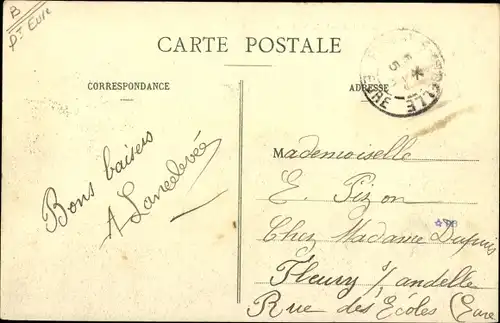 B
pt Eure
CARTE POSTALE
CORRESPONDANCE
ADRESSE
EURE
Bons baisers
A Lancelevée
Mademoiselle
E. Pizon
Chez Madame Dupuis
Fleury s/ andelle
Rue des Écoles (Eure